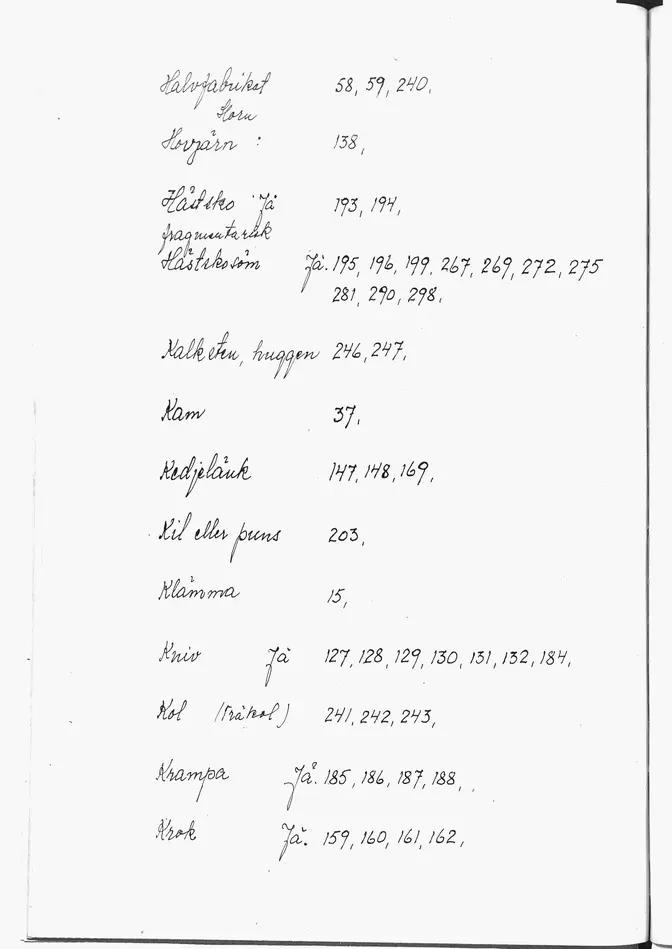 Halvfabrikat 58, 59, 240,
Horn
Hovjärn : 138,
Hästsko Jä 193, 194,
fragmentarisk
Hästskosöm Jä. 195, 196, 199, 267, 269, 272, 275
281, 290, 298,
Kalksten, huggen 246, 247,
Kam 37,
Kedjelänk 147, 148, 169,
Kil eller puns 203,
Klämma 15,
Kniv Jä 127, 128, 129, 130, 131, 132, 184,
Kol (Träkol) 241, 242, 243,
Krampa Jä. 185, 186, 187, 188,
Krok Jä. 159, 160, 161, 162,